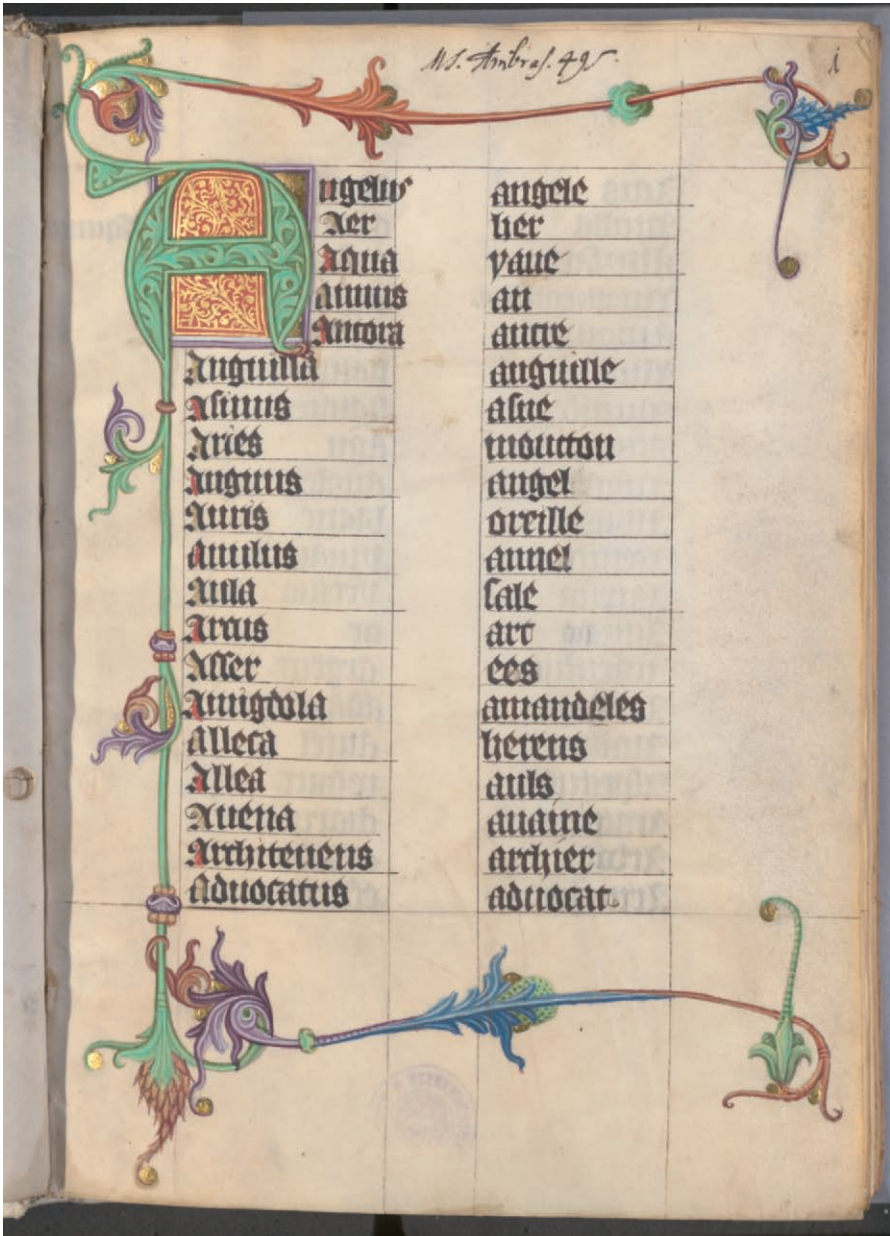 MS. Ambras. 495.
i
Angelus angele
Aer her
Aqua yaue
Annus an
Ancora ancre
Anguilla anguille
Asinus asne
Aries moutton
Anguus angel
Auris oreille
Anulus annel
Aula sale
Arcus arc
Asser ees
Amigdola amandeles
Alleca herens
Allea auls
Auena auaine
Architenens archier
Aduocatus aduocat